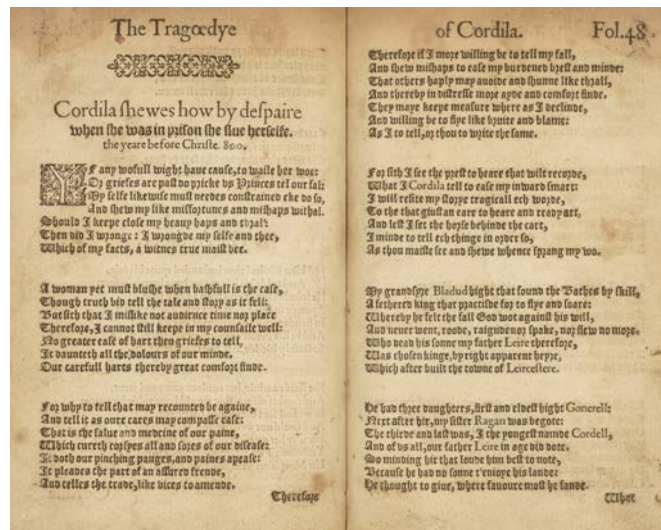 The Tragœdye
Cordila shewes how by despaire
when she was in prison she slue herselfe.
the yeare before Christe. 800.
YF any wofull wight haue cause, to waile her woe:
Or griefes are past do pricke vs Princes tel our fal:
My selfe likewise must needes constrained eke do so,
And shew my like misfortunes and mishaps withal.
Should I keepe close my heauy haps and thral?
Then did I wronge: I wrongde my selfe and thee,
Which of my facts, a witnes true maist bee.
A woman yet must blushe when bashfull is the case,
Though truth bid tell the tale and story as it fell:
But sith that I mislike not audience time nor place
Therefore, I cannot still keepe in my counsaile well:
No greater ease of hart then griefes to tell,
It daunteth all the dolours of our minde.
Our carefull harts thereby great comfort finde.
For why to tell that may recounted be againe,
And tell it as oure cares may compasse ease:
That is the salue and medcine of our paine,
Which cureth corpses all and sores of our disease:
It doth our pinching pauges, and paines apease:
It pleades the part of an assured frende,
And telles the trade, like vices to amende.
Therefore
of Cordila. Fol.48
Therefore if I more willing be to tell my fall,
And shew mishaps to ease my burdened brest and minde:
That others haply may auoide and shunne like thrall,
And thereby in distresse more ayde and comfort finde.
They maye keepe measure where as I declinde,
And willing be to flye like bruite and blame:
As I to tell, or thou to write the same.
For sith I see the prest to heare that wilt recorde,
What I Cordila tell to ease my inward smart:
I will resite my storye tragicall ech worde,
To the that giust an eare to heare and ready art,
And lest I set the horse behinde the cart,
I minde to tell ech thinge in order so,
As thou maiste see and shewe whence sprang my wo.
My grandsyre Bladud hight that found the Bathes by skill,
A fethered king that practisde for to flye and soare:
Whereby he felt the fall God wot against his will,
And neuer went, roode, raignde nor spake, nor flew no more.
Who dead his sonne my father Leire therefore,
Was chosen kinge, by right apparent heyre,
Which after built the towne of Leircestere.
He had three daughters, first and eldest hight Gonerell:
Next after hir, my sister Ragan was begote:
The thirde and last was, I the yongest namde Cordell,
And of vs all, our father Leire in age did dote.
So minding hir that loude him best to note,
Because he had no sonne t'enioye his lande:
He thought to giue, where fauoure most he fande.
What